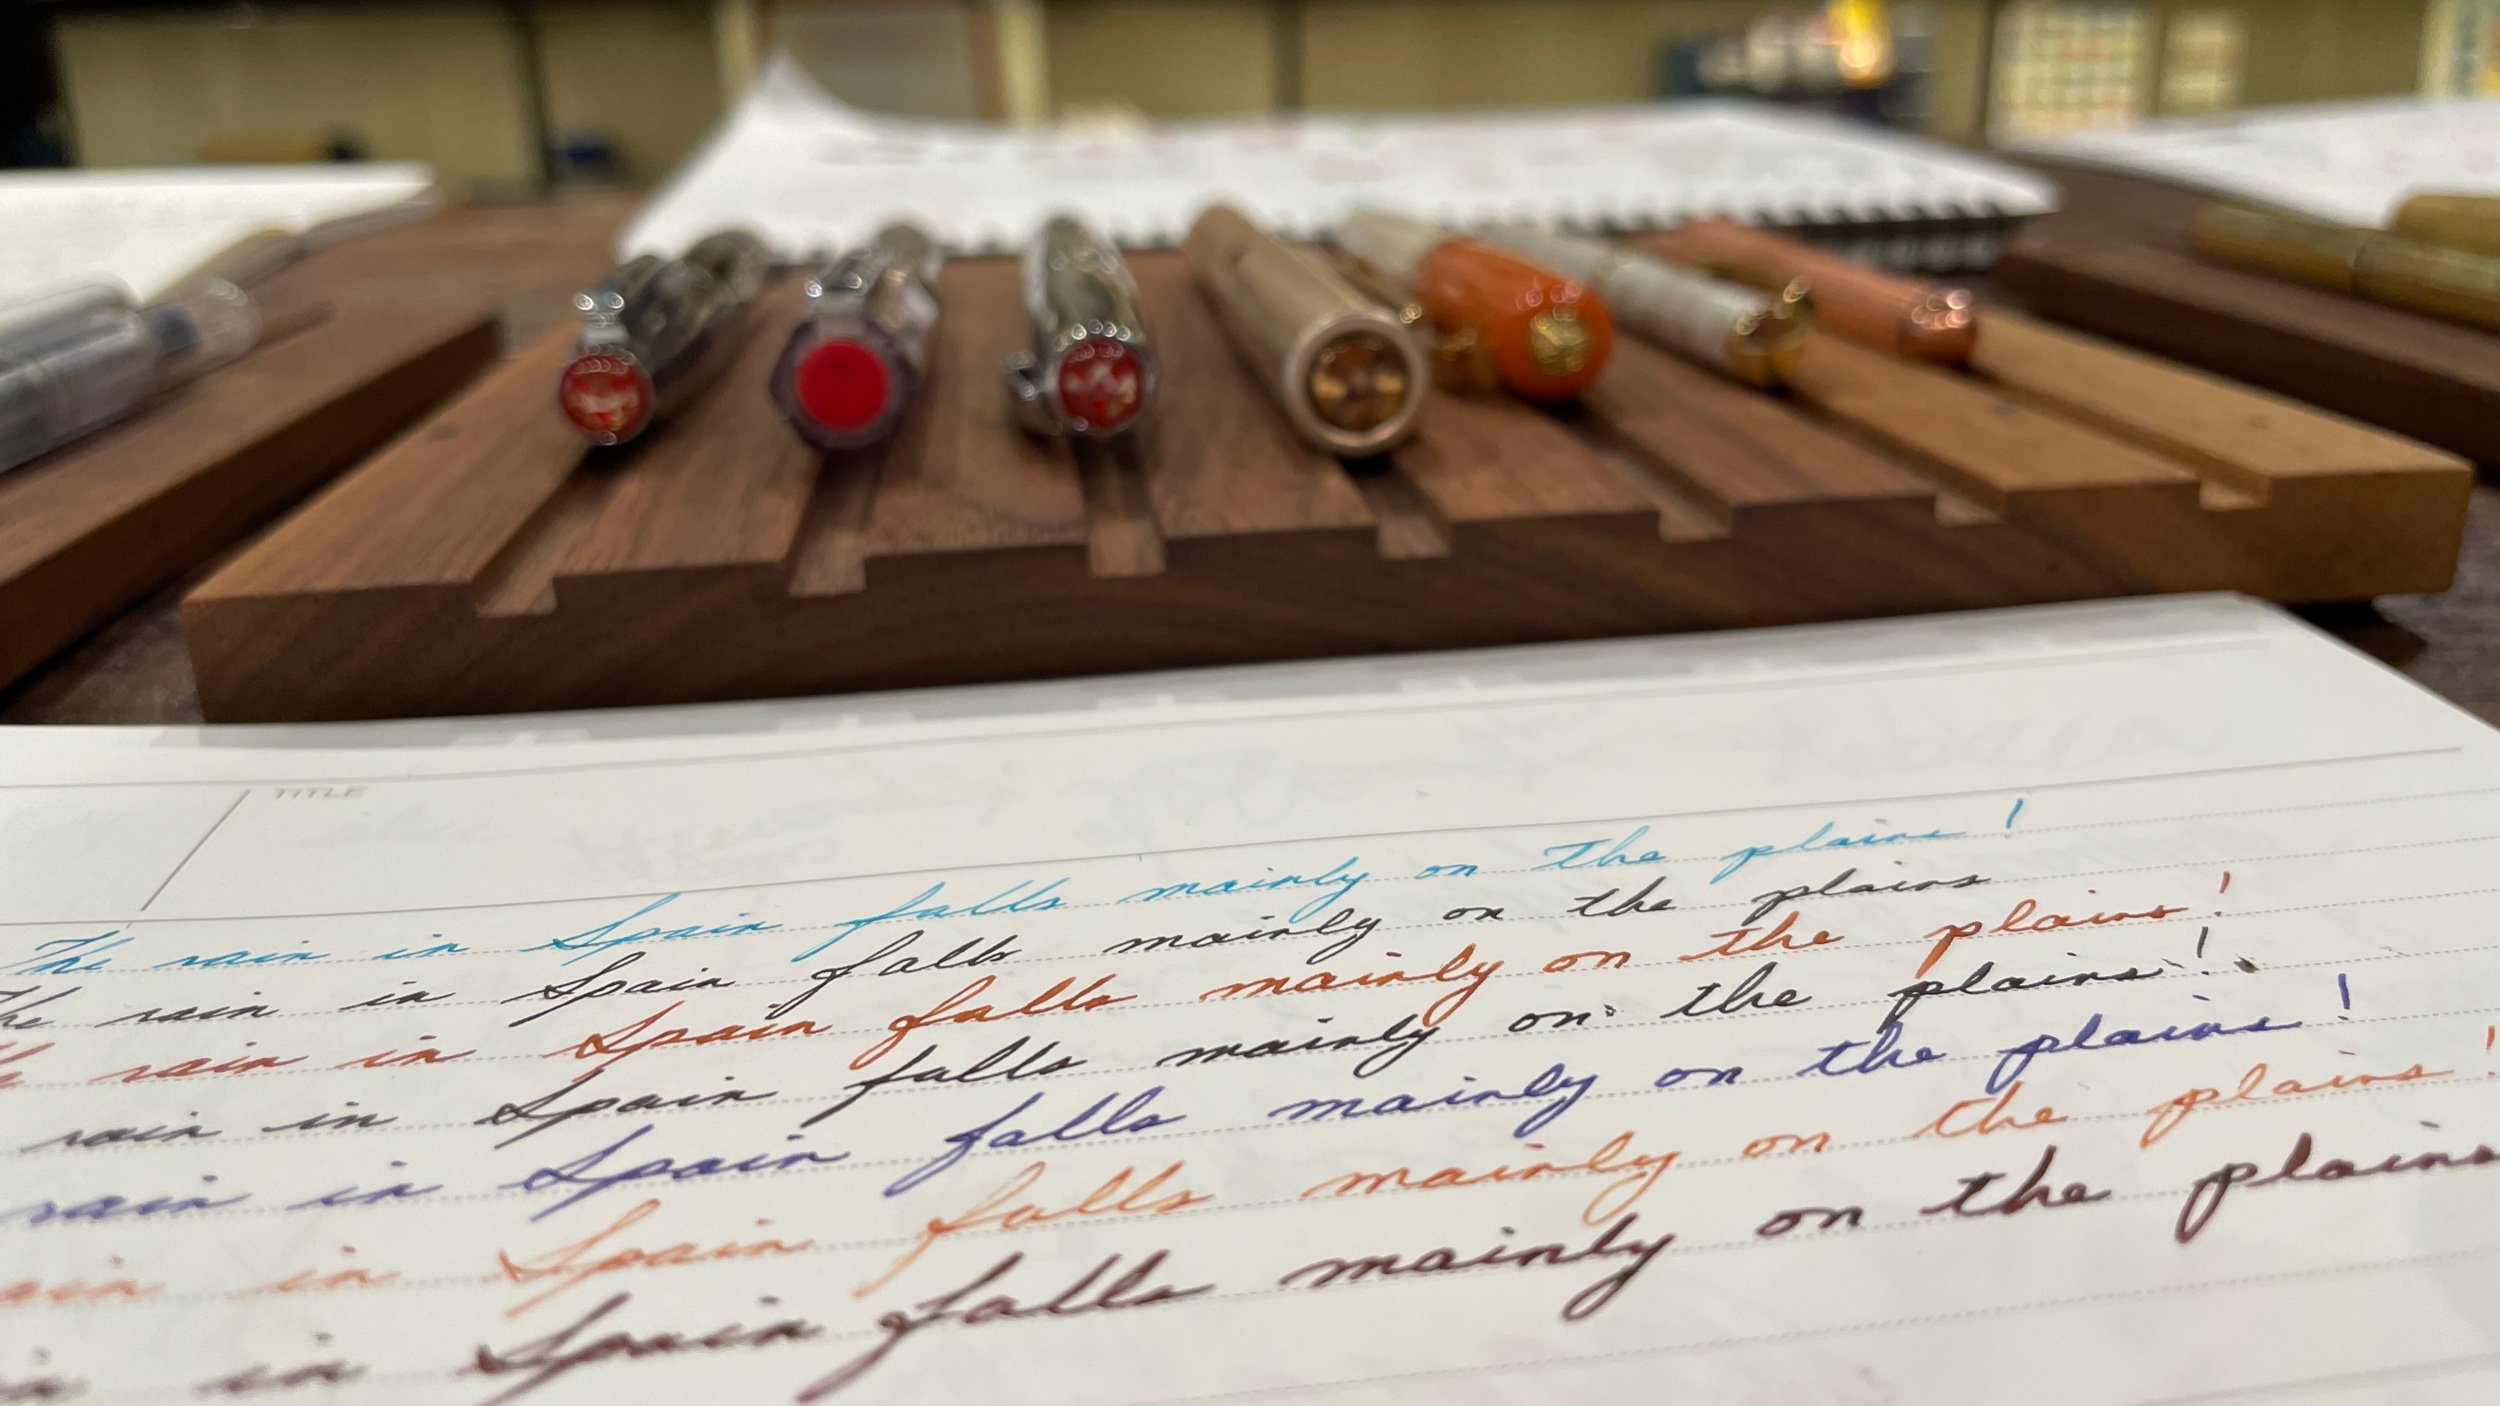 TITLE
The rain in Spain falls mainly on the plains!
The rain in Spain falls mainly on the plains
rain in Spain falls mainly on the plains!
rain in Spain falls mainly on the plains!
rain in Spain falls mainly on the plains!
in Spain falls mainly on the plains!
in Spain falls mainly on the plains